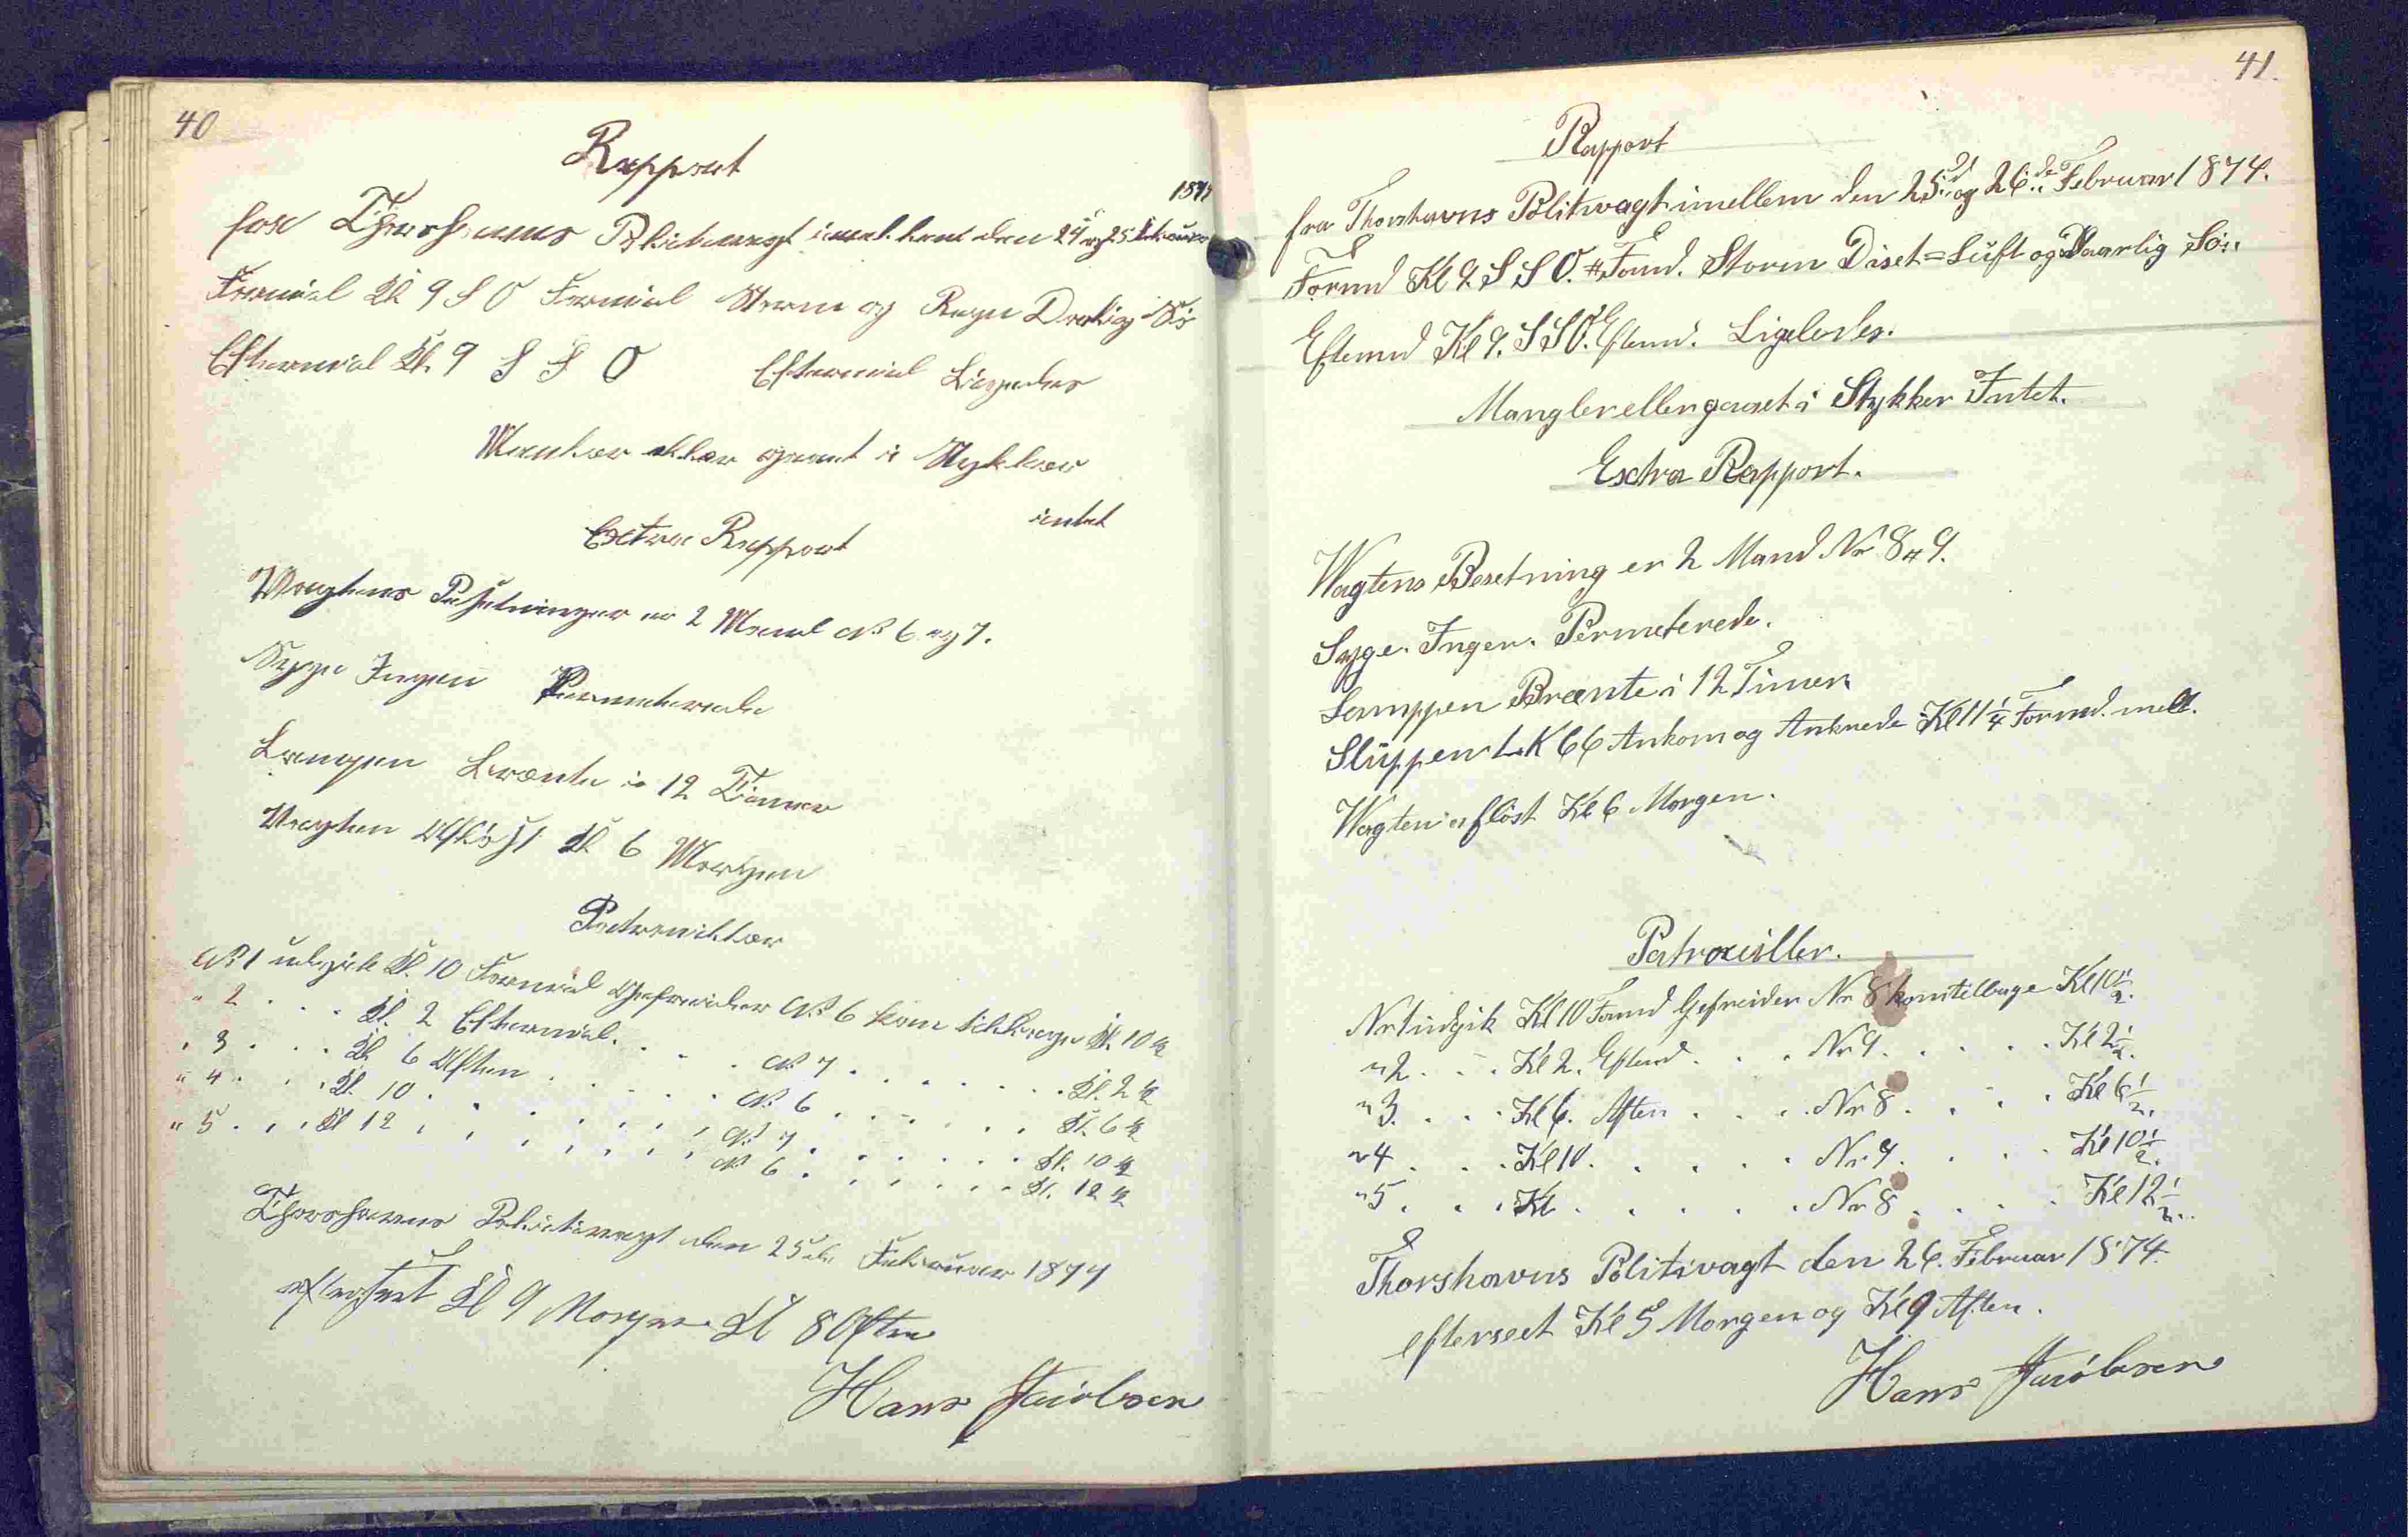 40
Rapport
fra Thorshavns Politivagt imellem den 24 og 25 Februar 1874
Formid Kl 9 S O Formid Storm og Regn Darlig Sö
Eftermid Kl. 9 S S O Eftermid Ligeledes
Mankler eller gaaet i Stykker
intet
Extra Rapport
Vagtens Besetninger er 2 Mand No 6 og 7.
Syge Ingen Permeterede
Lampen Brænte i 12 Timer
Vagten Aflöst Kl 6 Morgen
Patrouiller
No 1 udgik Kl. 10 Formid Gefreider No 6 kom tilbage Kl. 10 1/2
" 2 . . . Kl. 2 Eftermid. . . . No 7 . . . . . . . Kl. 2 1/2
" 3 . . . Kl 6 Aften . . . . . No 6 . . . . . . Kl. 6 1/2
" 4 . . . Kl. 10 . . . . . . . No 7 . . . . . . Kl. 10 1/2
" 5 . . . Kl 12 . . . . . . . No 6 . . . . . . Kl. 12 1/2
Thorshavns Politivagt den 25de Februar 1874
efterseet Kl 9 Morgen Kl 8 Aften
Hans Jacobsen
41.
Rapport
fra Thorshavns Politivagt imellem den 25d og 26de Februar 1874.
Formd Kl 9. S S O. Formd. Storm Diset=Luft og Daarlig Sö..
Eftemd Kl 9. S S O. Eftemd. Ligeledes.
Mangler eller gaaet i Stykker Intet.
Extra Rapport.
Wagtens Besetning er 2 Mand Nr 8 " 9.
Syge. Ingen. Permeterede.
Lamppen Brænte i 12 Timer
Slüppen L.K 66 Ankom og Ankrede Kl 11 1/4 Formd. melt.
Wagten aflöst Kl 6 Morgen.
Patrouiller.
Nr 1 udgik Kl 10 Formd Gefreider Nr 8 kom tilbage Kl 10 1/2.
" 2 . . . Kl 2. Eftemd . . . Nr 9. . . . . . Kl 2 1/2.
" 3. . . . Kl 6. Aften . . . . Nr 8 . . . . Kl 6 1/2.
" 4 . . . Kl 10. . . . . . Nr 9. . . . Kl 10 1/2.
" 5 . . . Kl . . . . . . Nr 8 . . . . Kl 12 1/2..
Thorshavns Politivagt den 26. Februar 1874.
efterseet Kl 5 Morgen og Kl 9 Aften.
Hans Jacobsen